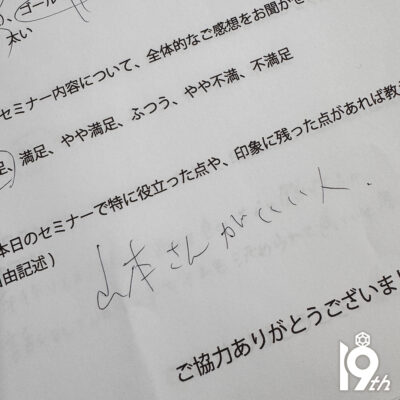 、ゴール
太い
セミナー内容について、全体的なご感想をお聞かせ
足、満足、やや満足、ふつう、やや不満、不満足
本日のセミナーで特に役立った点や、印象に残った点があれば教
由記述）
山本さんがいい人.
ご協力ありがとうございまし
19th